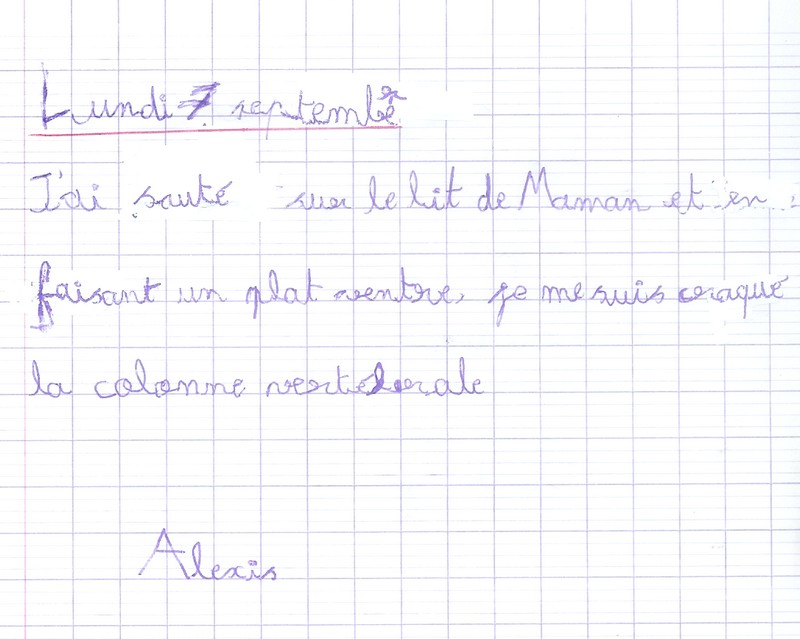 Lundi 7 septembre
J'ai sauté sur le lit de Maman et en
faisant un plat ventre, je me suis craqué
la colonne vertebrale
Alexis